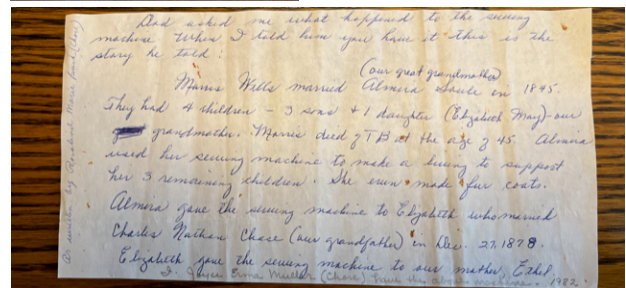 Dad asked me what happened to the sewing
machine. When I told him you have it this is the
story he told:
(our great grandmother)
Morris Wells married Almira Soule in 1845.
They had 4 children - 3 sons + 1 daughter (Elizabeth May) - our
grandmother. Morris died of TB at the age of 45. Almira
used her sewing machine to make a living to support
her 3 remaining children. She even made fur coats.
Almira gave the sewing machine to Elizabeth who married
Charles Nathan Chase (our grandfather) in Dec. 27, 1878.
Elizabeth gave the sewing machine to our mother, Ethel.
I, Joyce Erma Muller (Chase) have the above machine. 1982.
As written by Rosabond Marie